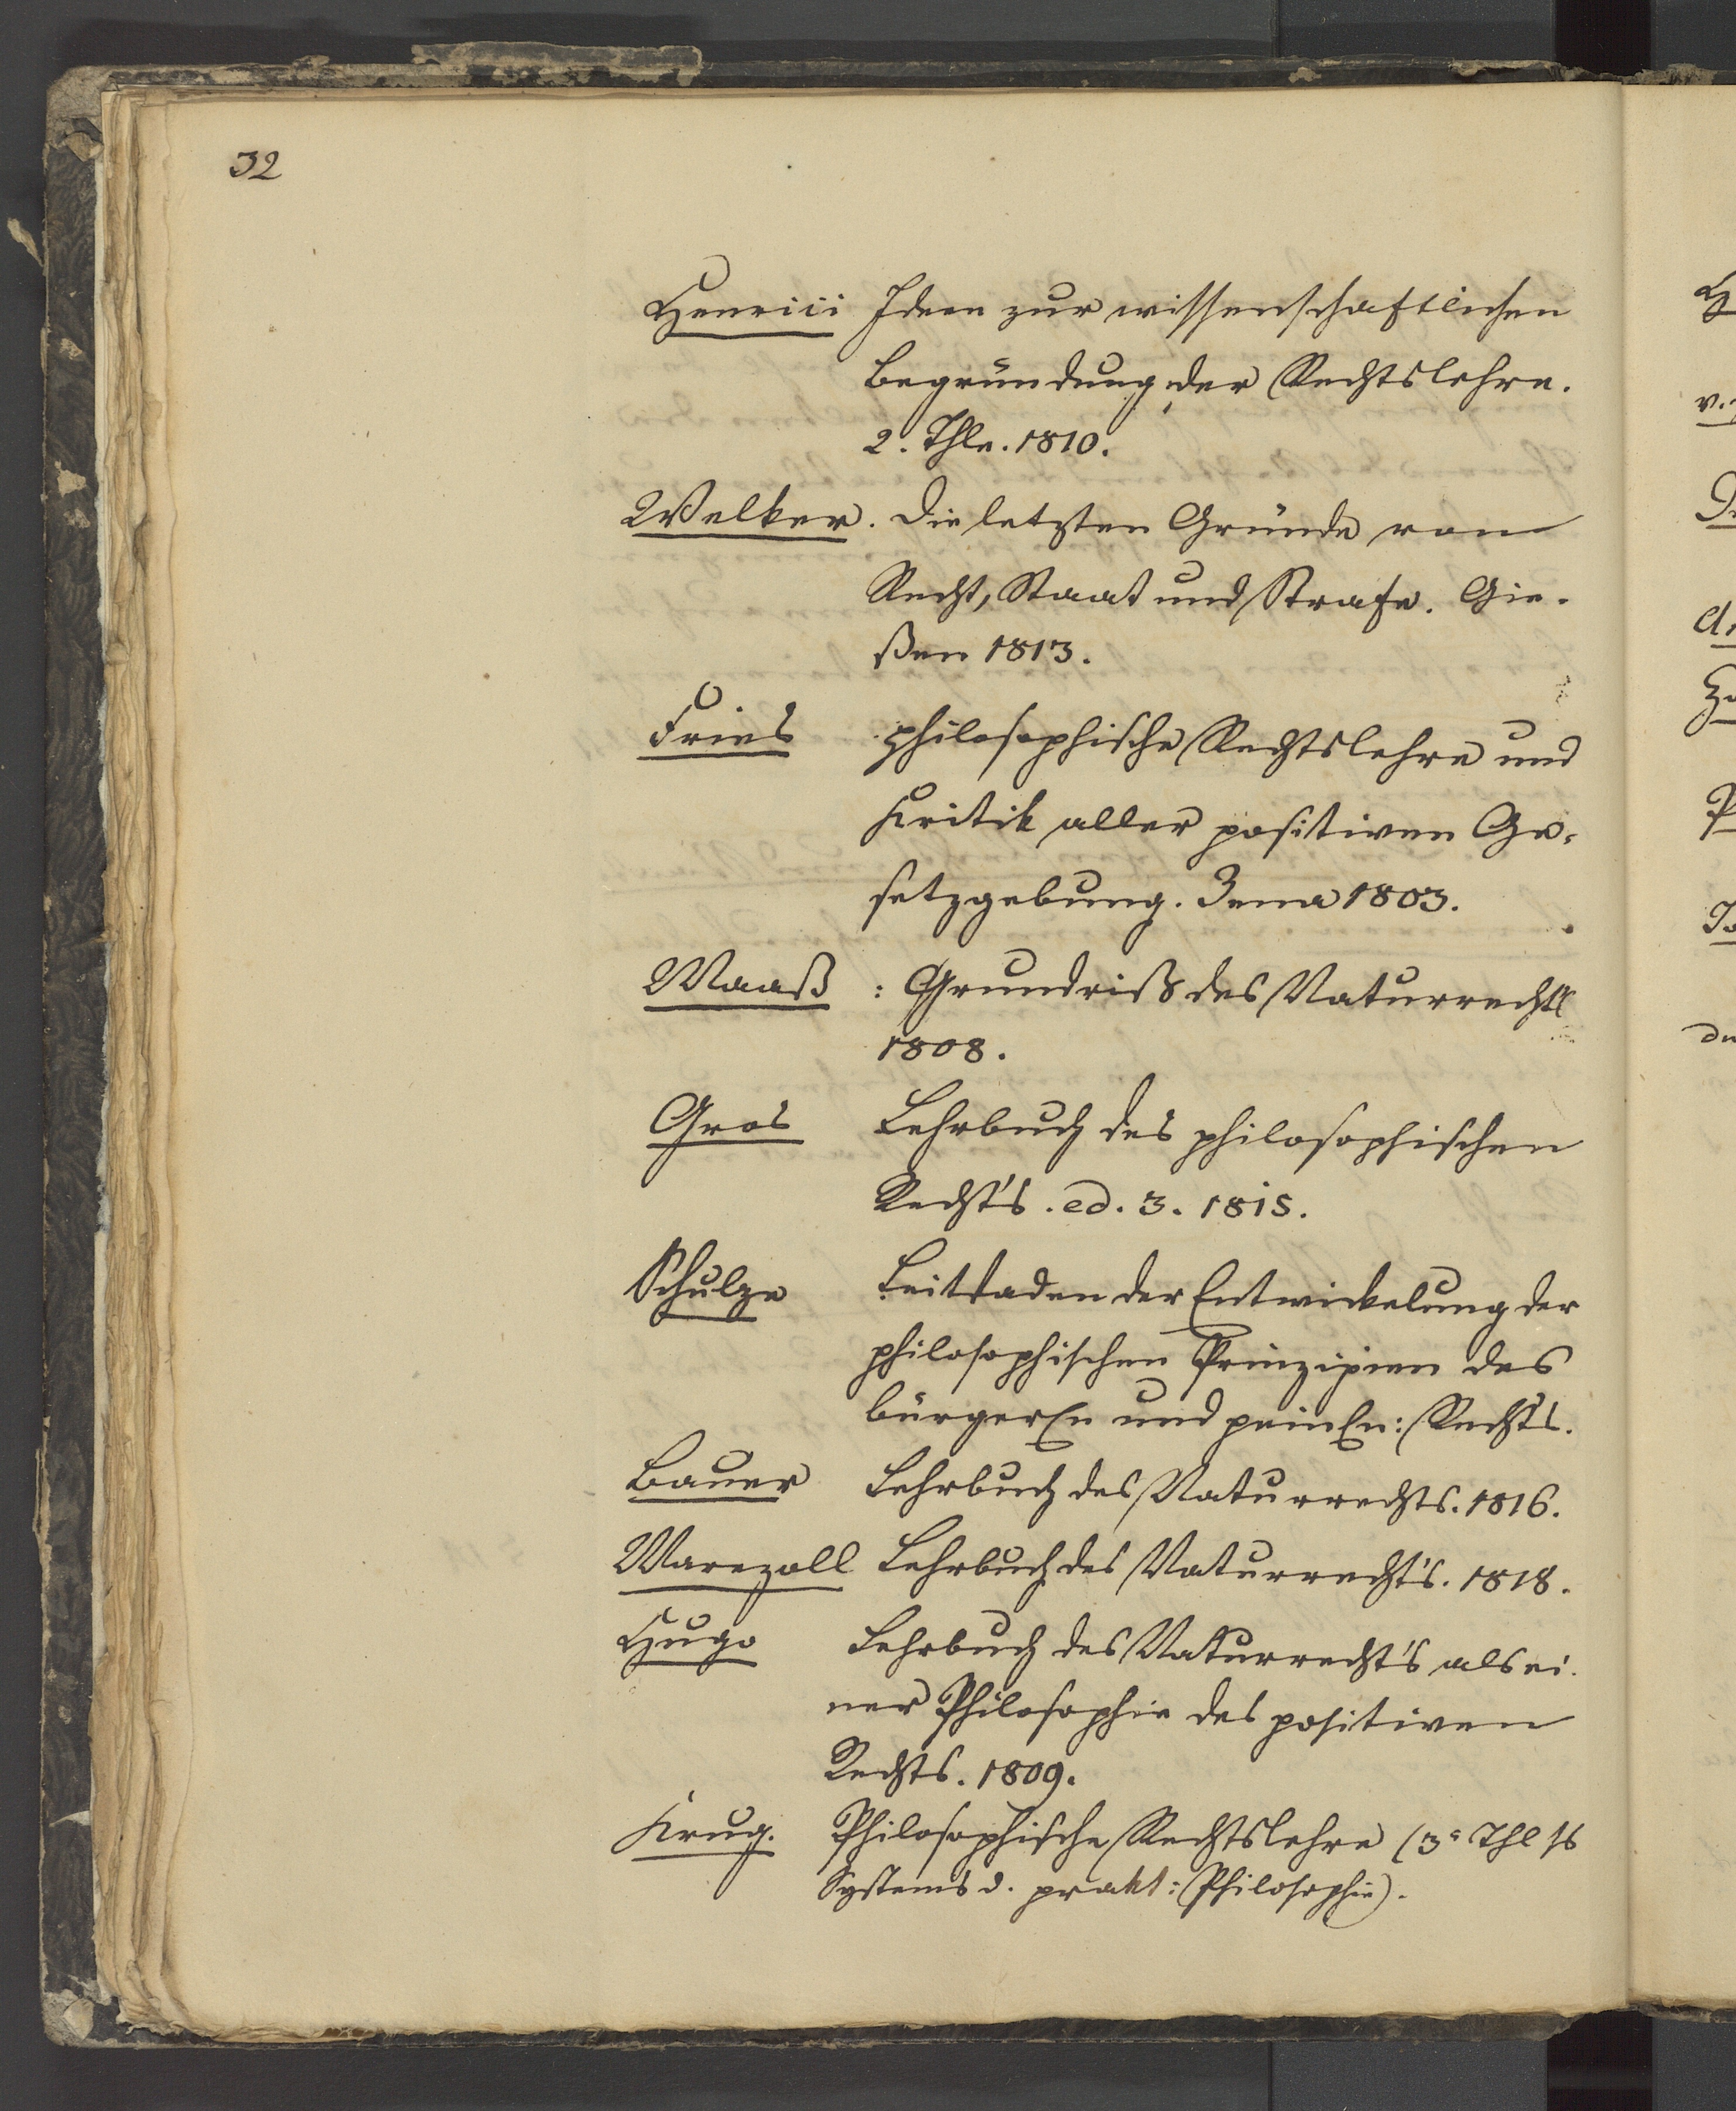 32
Henrici Ideen zur wissenschaftlichen
Begründung der Rechtslehre.
2. Thle. 1810.
Welker. die letzten Gründe von
Recht, Staat und Strafe. Gie-
ßen 1813.
Fries philosophische Rechtslehre und
Kritik aller positiven Ge-
setzgebung. Jena 1803.
Maaß : Grundriß des Naturrechts
1808.
Gros Lehrbuch des philosophischen
Recht's. ed. 3. 1815.
Schulze Leitfaden der Entwickelung der
philosophischen Prinzipien des
bürgerln und peinln: Rechts.
Bauer Lehrbuch des Naturrechts. 1816.
Marezoll Lehrbuch des Naturrecht's. 1818.
Hugo Lehrbuch des Naturrecht's als ei-
ner Philosophie des positiven
Rechts. 1809.
Krug. Philosophische Rechtslehre (3r Thl
Systems d. prakt: Philosophie).
H
v.